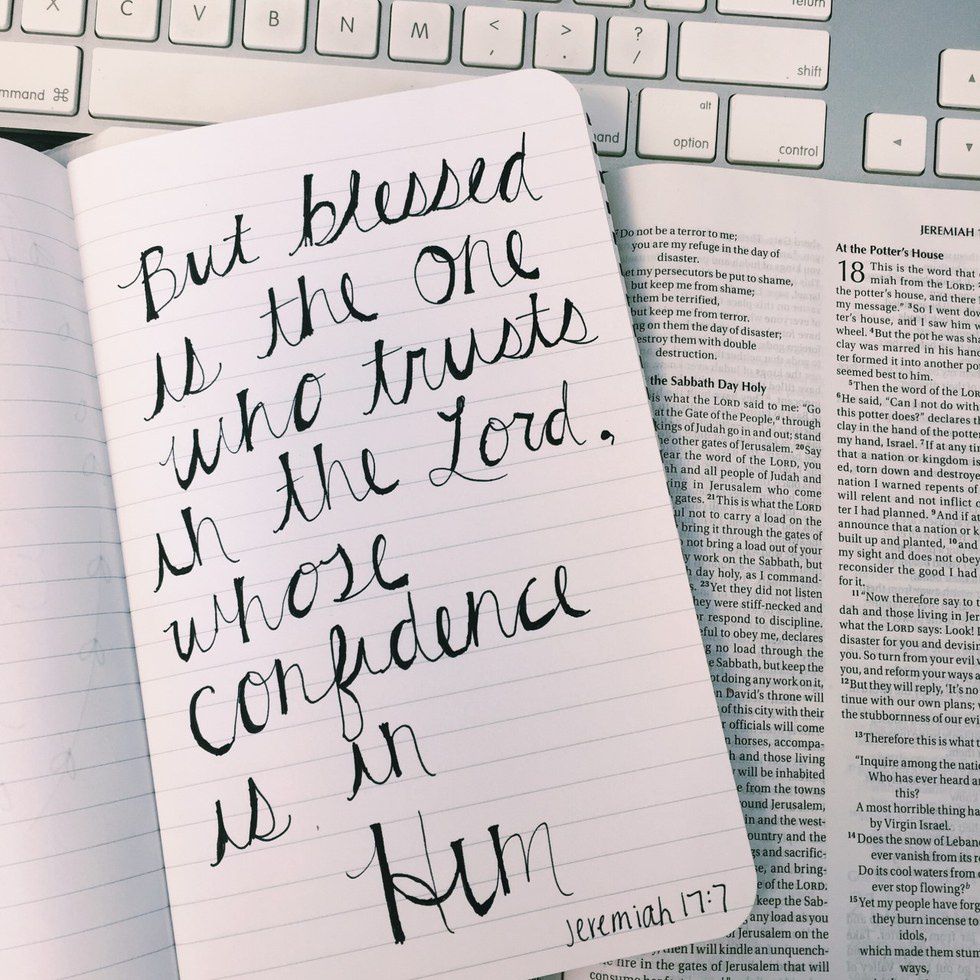 X C V B N M < , > . ? / return
command ⌘ shift
alt option control
But blessed
is the one
who trusts
in the Lord,
whose
confidence
is in
Him
Jeremiah 17:7
Do not be a terror to me;
you are my refuge in the day of
disaster.
my persecutors be put to shame,
but keep me from shame;
them be terrified,
but keep me from terror.
on them the day of disaster;
them with double
destruction.
the Sabbath Day Holy
is what the LORD said to me: “Go
at the Gate of the People,ᵃ through
kings of Judah go in and out; stand
the other gates of Jerusalem. ²⁰Say
the word of the LORD, you
and all people of Judah and
in Jerusalem who come
gates. ²¹This is what the LORD
not to carry a load on the
bring it through the gates of
not bring a load out of your
work on the Sabbath, but
day holy, as I command-
²³Yet they did not listen
they were stiff-necked and
respond to discipline.
to obey me, declares
no load through the
Sabbath, but keep the
doing any work on it,
David’s throne will
of this city with their
officials will come
horses, accompa-
and those living
will be inhabited
from the towns
Jerusalem,
in and the west-
country and the
and sacrific-
and bring-
of the LORD.
keep the Sab-
any load as you
Jerusalem on the
then I will kindle an unquench-
fire in the gates of Jerusalem that will
JEREMIAH
At the Potter’s House
18 This is the word that
miah from the LORD:
the potter’s house, and there
my message.” ³So I went
ter’s house, and I saw him
wheel. ⁴But the pot he was
clay was marred in his
ter formed it into another
seemed best to him.
⁵Then the word of the LORD
⁶He said, “Can I not do with
this potter does?” declares
clay in the hand of the potter
my hand, Israel. ⁷If at any
that a nation or kingdom is
ed, torn down and destroyed
nation I warned repents of
will relent and not inflict
ter I had planned. ⁹And if at
announce that a nation or
built up and planted, ¹⁰and
my sight and does not obey
reconsider the good I had
for it.
¹¹“Now therefore say to
dah and those living in
what the LORD says: Look!
disaster for you and
you. So turn from your evil
you, and reform your ways
¹²But they will reply, ‘It’s no
tinue with our own plans;
the stubbornness of our
¹³Therefore this is what
“Inquire among the
Who has ever heard
this?
A most horrible thing
by Virgin Israel.
¹⁴Does the snow of
ever vanish from its
Do its cool waters from
ever stop flowing?ᵇ
¹⁵Yet my people have
they burn incense to
idols,
which made them
ways,